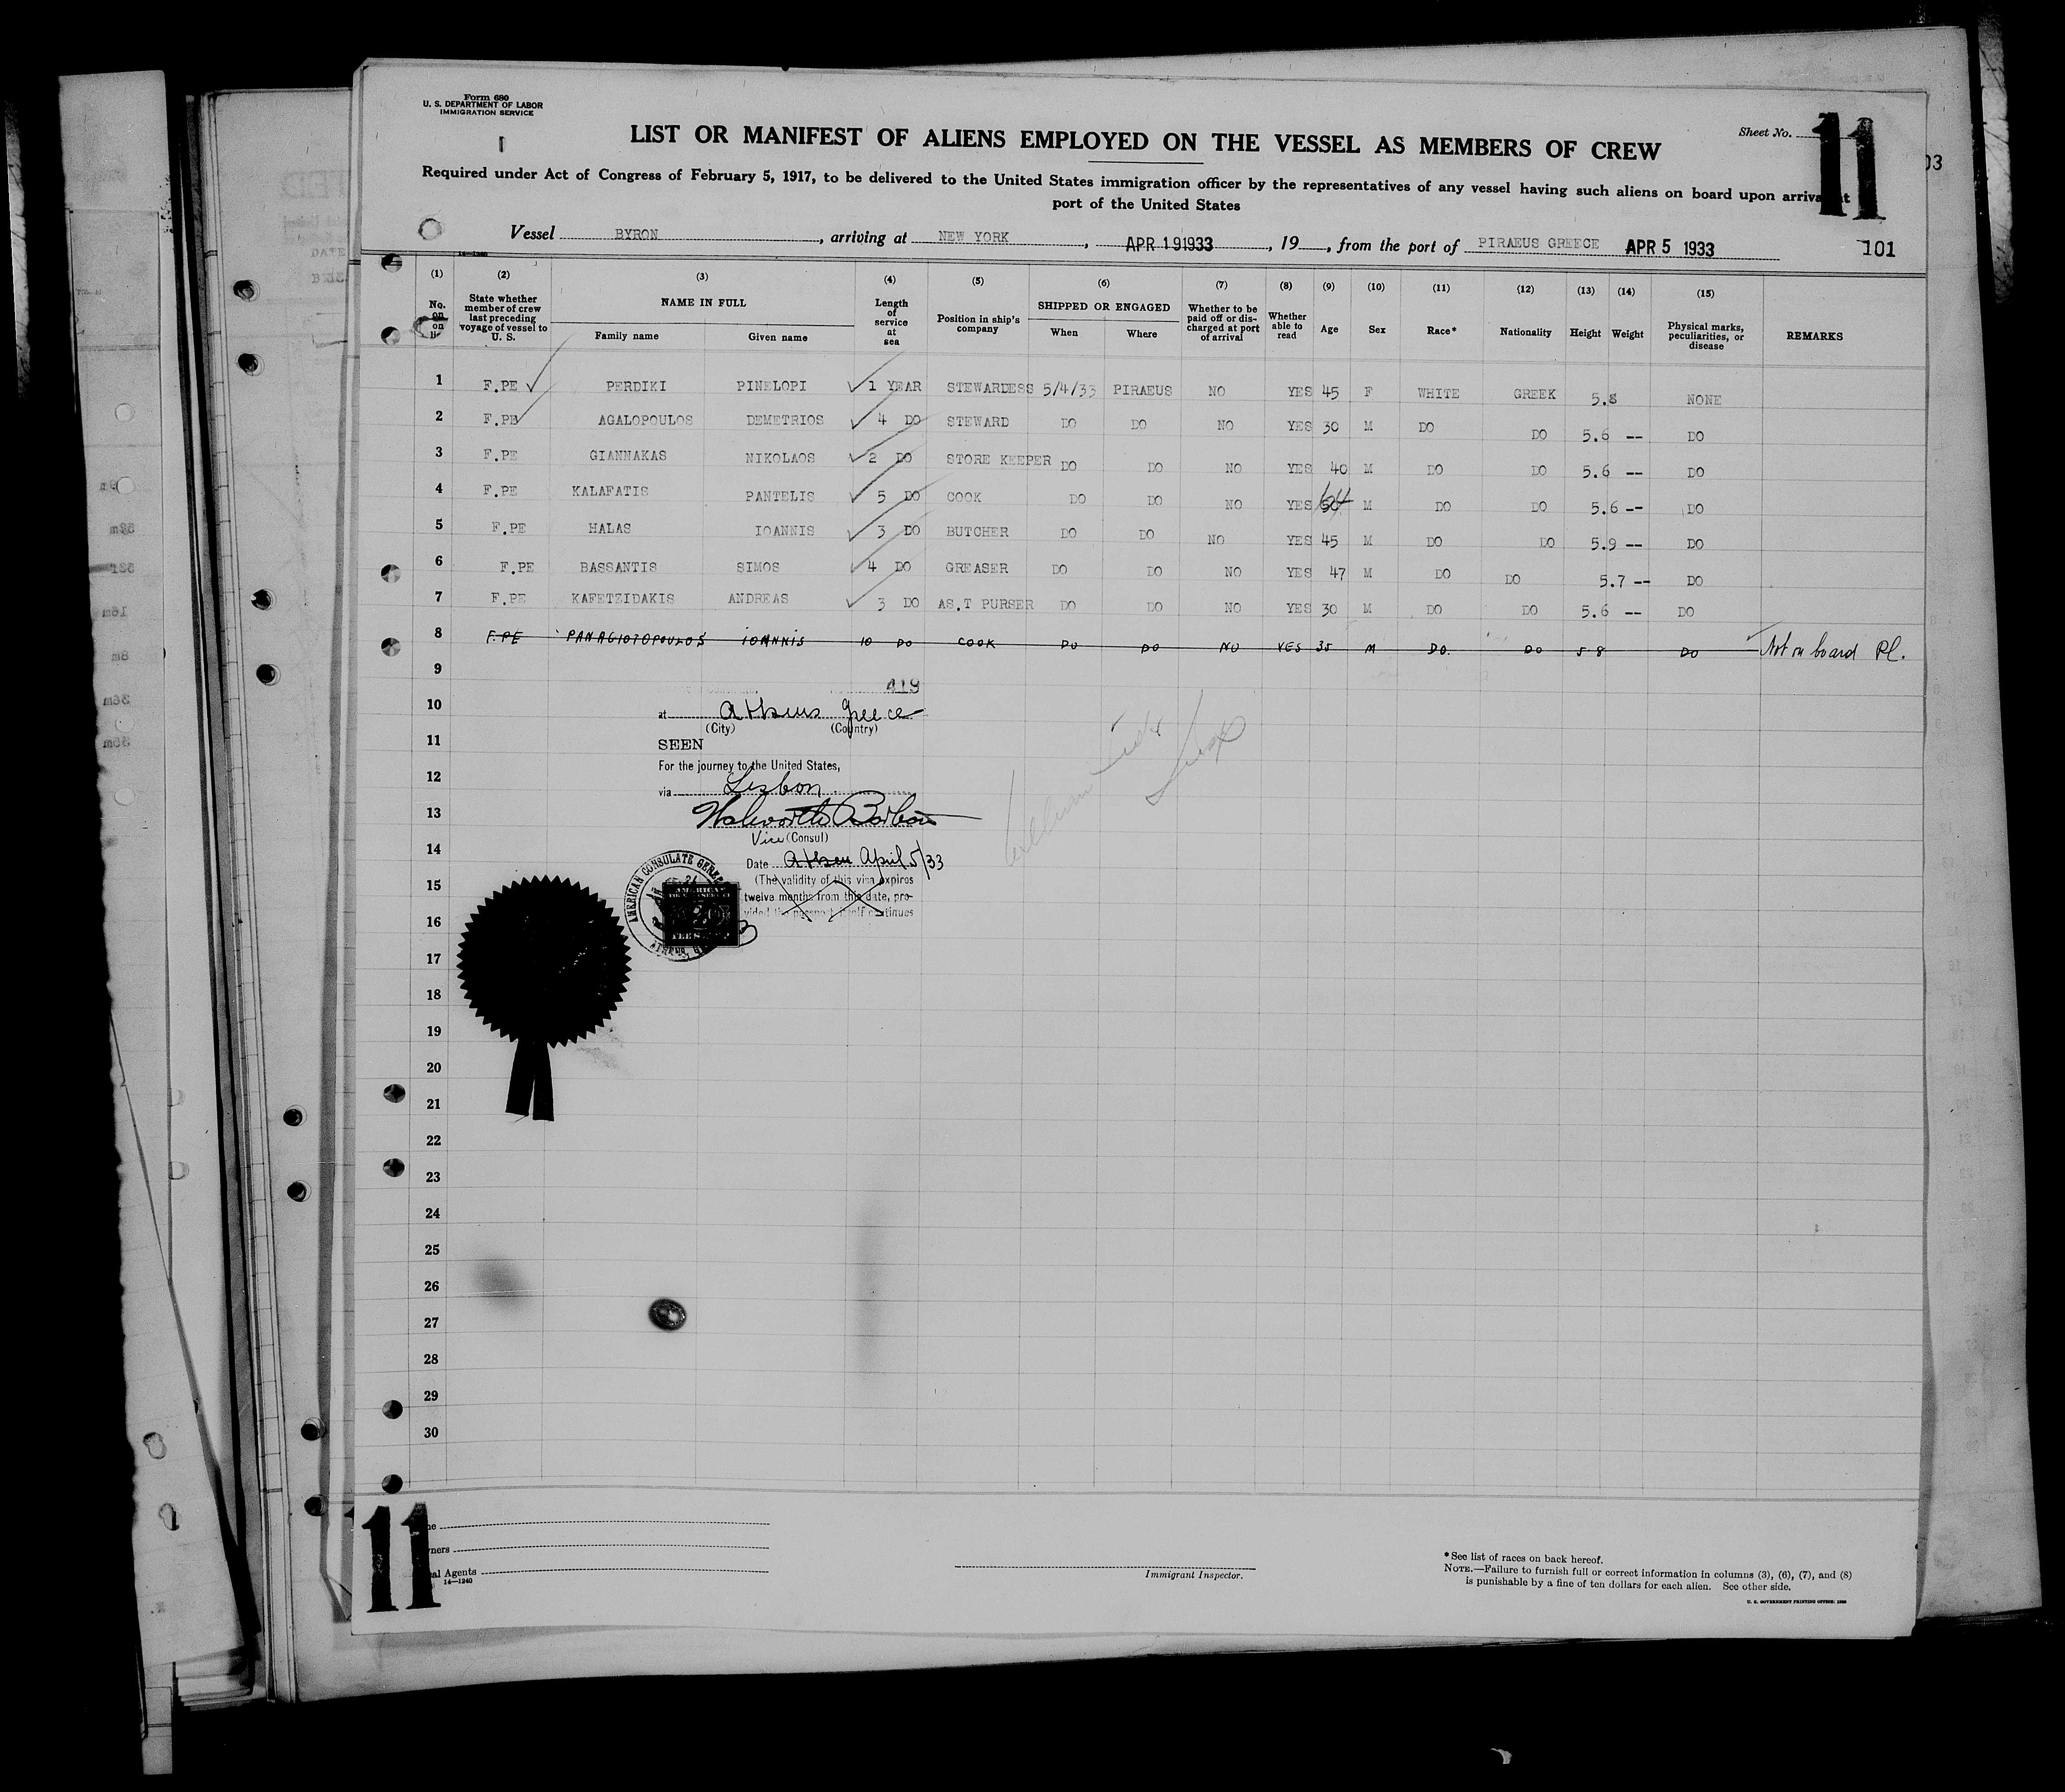 Form 680
U. S. DEPARTMENT OF LABOR
IMMIGRATION SERVICE
Sheet No. 11
LIST OR MANIFEST OF ALIENS EMPLOYED ON THE VESSEL AS MEMBERS OF CREW
03
Required under Act of Congress of February 5, 1917, to be delivered to the United States immigration officer by the representatives of any vessel having such aliens on board upon arrival at
port of the United States
Vessel BYRON, arriving at NEW YORK, APR 191933, 19, from the port of PIRAEUS GREECE APR 5 1933 101
(1) (2) (3) (4) (5) (6) (7) (8) (9) (10) (11) (12) (13) (14) (15)
No. on list State whether member of crew last preceding voyage of vessel to U. S. NAME IN FULL Family name Given name Length of service at sea Position in ship's company SHIPPED OR ENGAGED When Where Whether to be paid off or discharged at port of arrival Whether able to read Age Sex Race* Nationality Height Weight Physical marks, peculiarities, or disease REMARKS
1 F.PE PERDIKI PINELOPI 1 YEAR STEWARDESS 5/4/33 PIRAEUS NO YES 45 F WHITE GREEK 5.8 NONE
2 F.PE AGALOPOULOS DEMETRIOS 4 DO STEWARD DO DO NO YES 30 M DO DO 5.6 -- DO
3 F.PE GIANNAKAS NIKOLAOS 2 DO STORE KEEPER DO DO NO YES 40 M DO DO 5.6 -- DO
4 F.PE KALAFATIS PANTELIS 5 DO COOK DO DO NO YES 64 M DO DO 5.6 -- DO
5 F.PE HALAS IOANNIS 3 DO BUTCHER DO DO NO YES 45 M DO DO 5.9 -- DO
6 F.PE BASSANTIS SIMOS 4 DO GREASER DO DO NO YES 47 M DO DO 5.7 -- DO
7 F.PE KAFETZIDAKIS ANDREAS 3 DO AS.T PURSER DO DO NO YES 30 M DO DO 5.6 -- DO
8 F.PE PANAGIOTOPOULOS IOANNIS 10 DO COOK DO DO NO YES 35 M DO. DO 5 8 DO Not on board Pl.
9
419
10 at Athens Greece
(City) (Country)
11 SEEN
For the journey to the United States,
12 via Lisbon
13 Walworth Barbour
Vice (Consul)
14 Date Athens April 5/33
15 (The validity of this visa expires
twelve months from this date, pro-
16 vided the passport itself continues
AMERICAN CONSULATE GENERAL
ATHENS,
17
18
19
20
21
22
23
24
25
26
27
28
29
30
11
Agents
14—1240
Immigrant Inspector.
*See list of races on back hereof.
NOTE.—Failure to furnish full or correct information in columns (3), (6), (7), and (8)
is punishable by a fine of ten dollars for each alien. See other side.
U. S. GOVERNMENT PRINTING OFFICE: